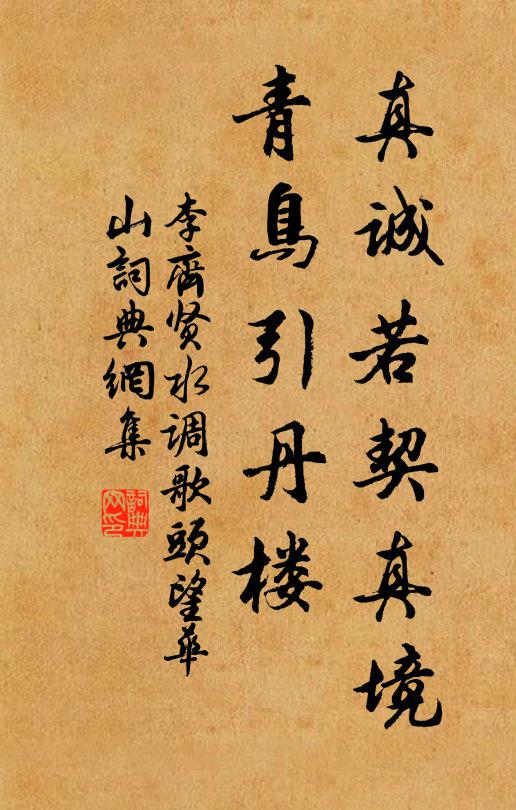 真诚若契真境
青鳥引丹楼
李齊贤水调歌頭望華
山詞典網集
詞典
网印